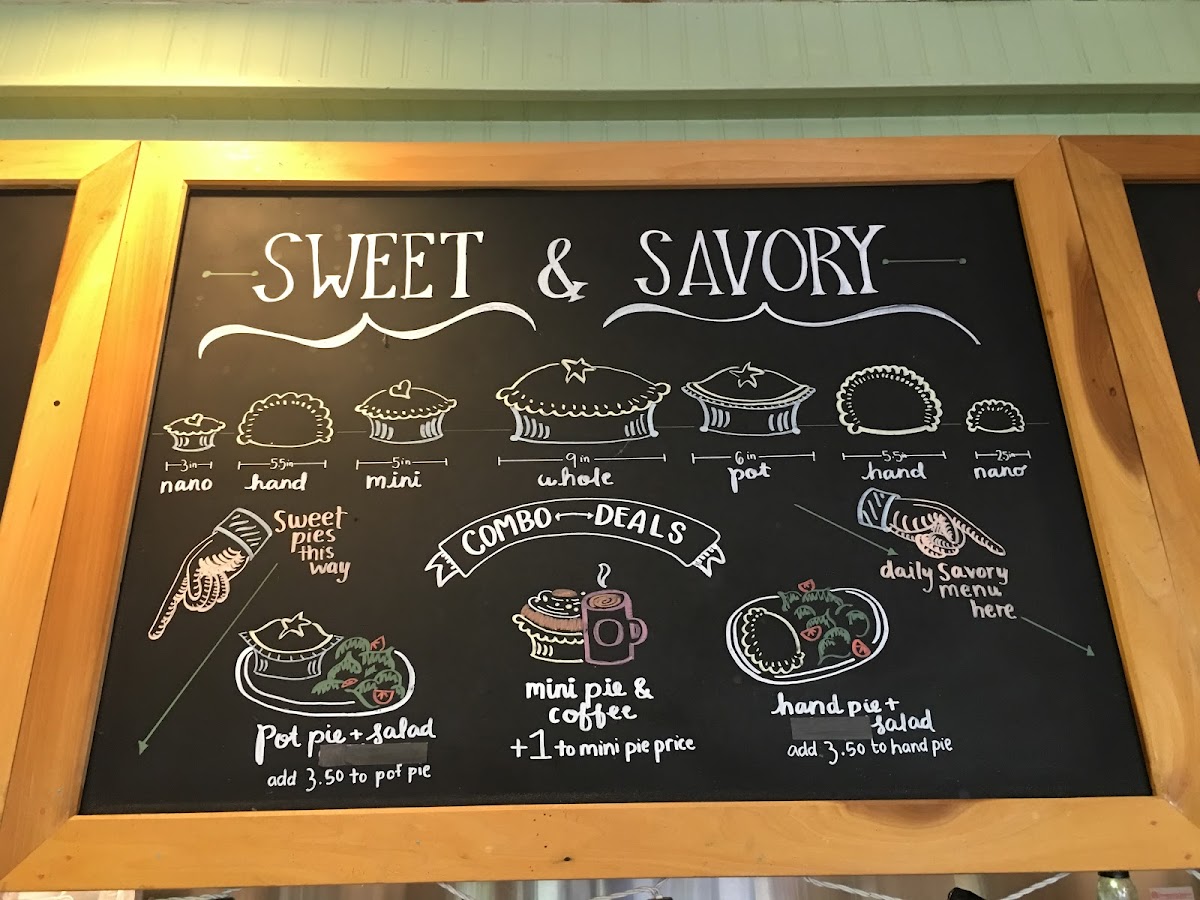 SWEET & SAVORY
3in 5.5in 5in 9in 6in 5.5in 2.5in
nano hand mini whole pot hand nano
Sweet
pies
this
way
COMBO DEALS
daily Savory
menu
here
pot pie + salad
add 3.50 to pot pie
mini pie &
coffee
+1 to mini pie price
hand pie +
salad
add 3.50 to hand pie